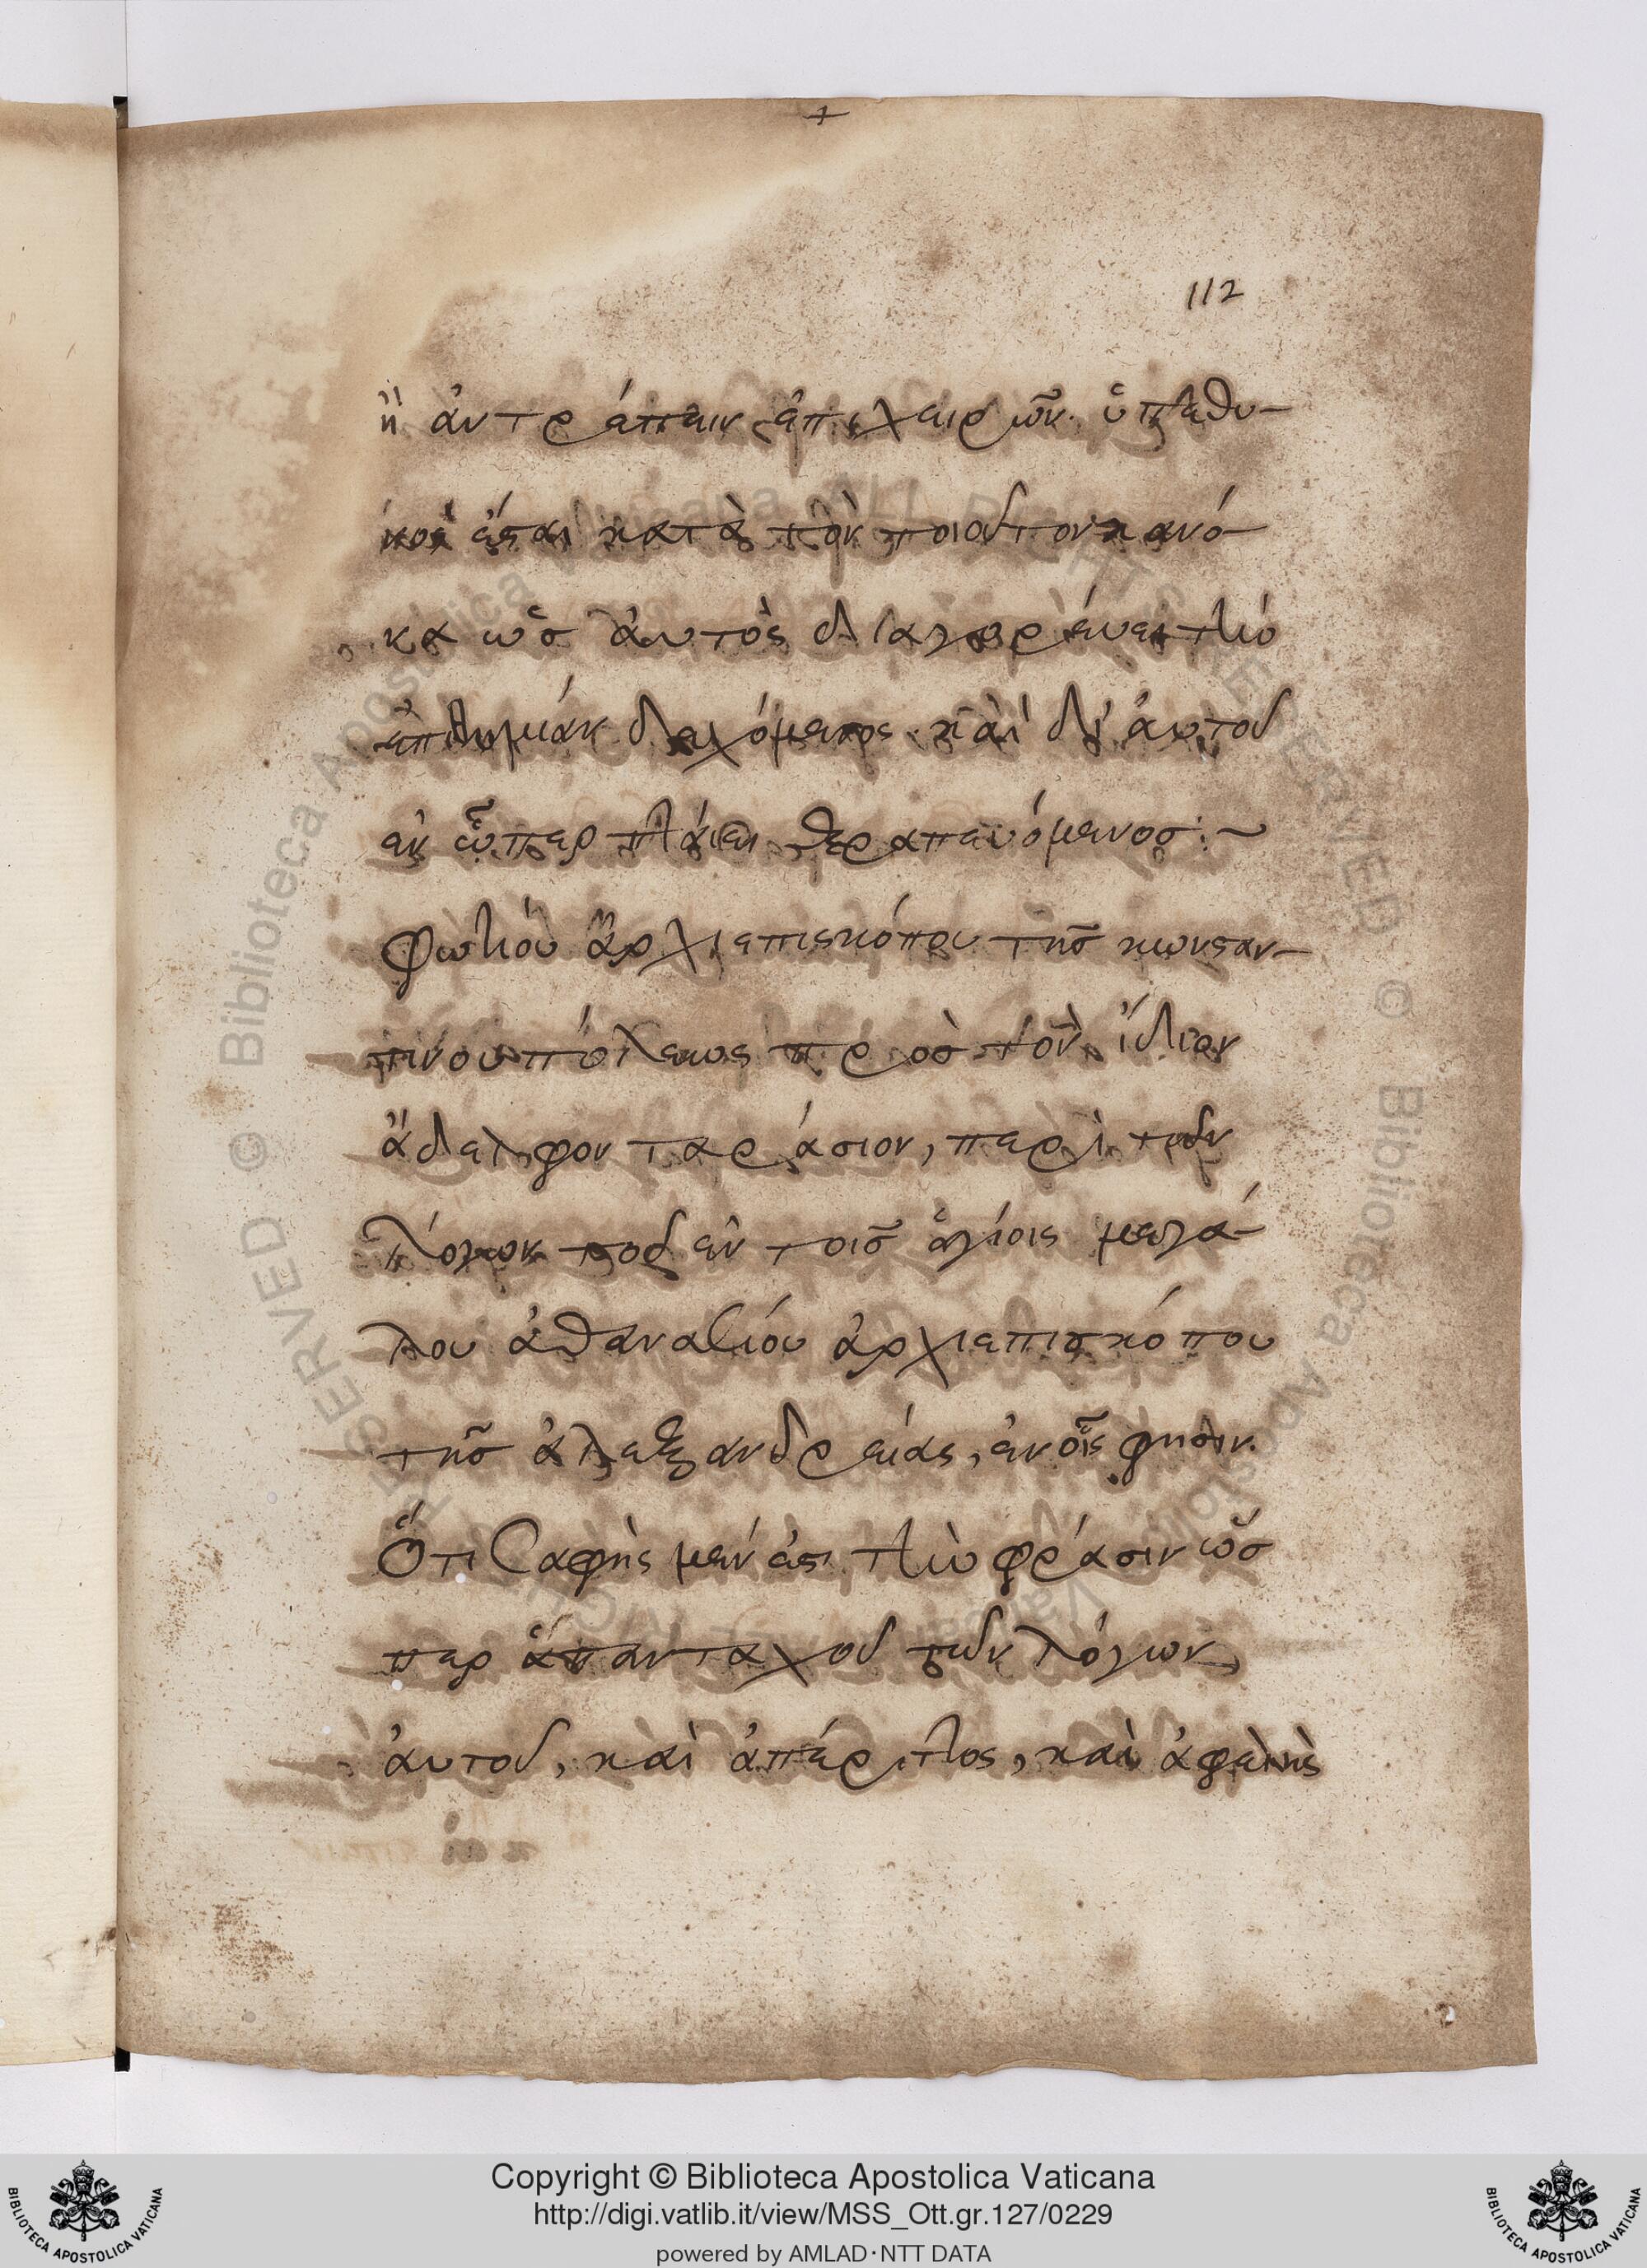 112
ἢ ἀντρέπειν ἐπιχειρῶν. ὑπεύθυ-
νος ἔσαι κατὰ τὸν τοιοῦτον κανό-
να ὡς ἀυτὸς διαγορέυει τὴν
ἐπιθυμίαν δεχόμενος. καὶ δι' ἀυτοῦ
ἐν ὧπερ πλάιει θεραπευόμενος :~
Φωτίου ἀρχιεπισκόπου τῆς κωνσαν-
τινουπόλεως πρὸς τὸν ἴδιον
ἀδελφον ταράσιον, περὶ τῶν
λόγων τοῦ ἐν τοῖς ἁγίοις μεγά-
λου ἀθανασίου ἀρχιεπισκόπου
τῆς ἀλεξανδρείας, ἐν οἷς φησιν.
Ὅτι σαφὴς μέν ἐστι τὴν φράσιν ὥσ
περ ἁπανταχοῦ τῶν λόγων
ἀυτοῦ, καὶ ἀπέριττος, καὶ ἀφελὴς
Copyright © Biblioteca Apostolica Vaticana
http://digi.vatlib.it/view/MSS_Ott.gr.127/0229
powered by AMLAD·NTT DATA
BIBLIOTECA APOSTOLICA VATICANA
BIBLIOTECA APOSTOLICA VATICANA